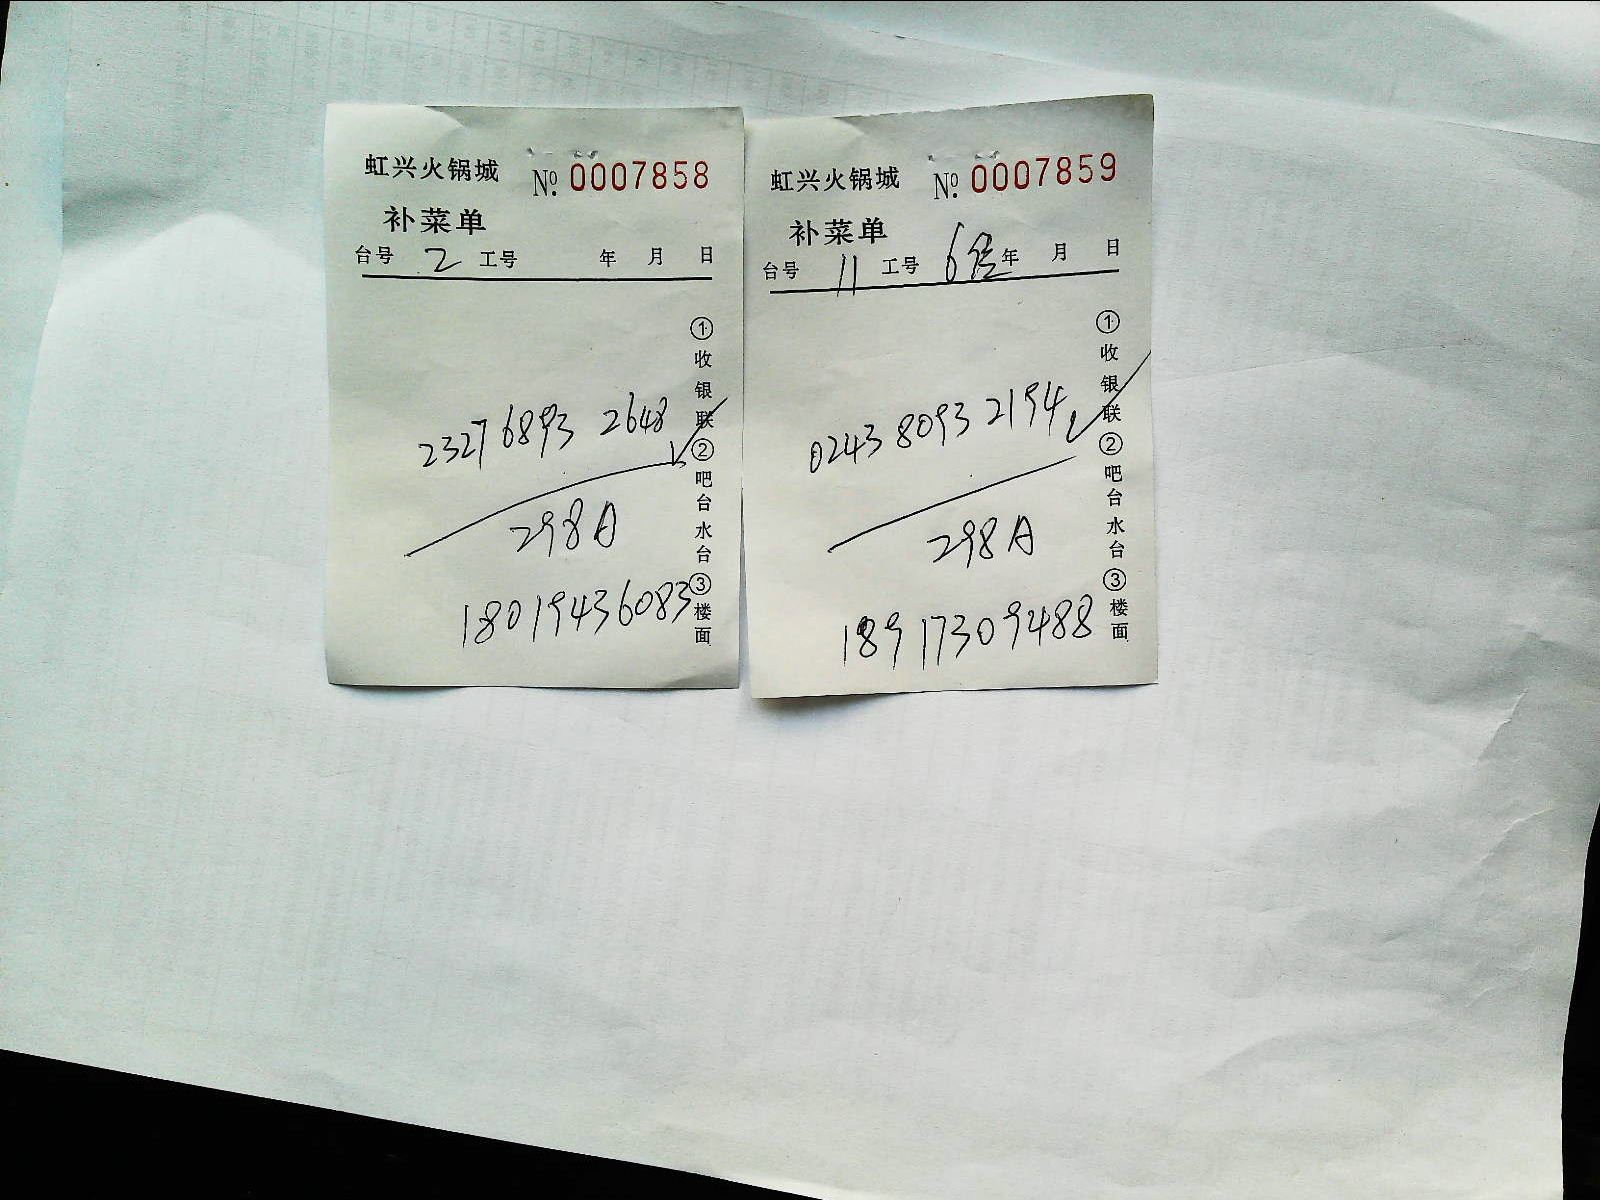 虹兴火锅城 № 0007858
补菜单
台号 2 工号 年 月 日
①收银联②吧台水台③楼面
2327 6893 2648
298A
18019436083
虹兴火锅城 № 0007859
补菜单
台号 11 工号 6 年 月 日
①收银联②吧台水台③楼面
0243 8093 2194
298A
18917309488